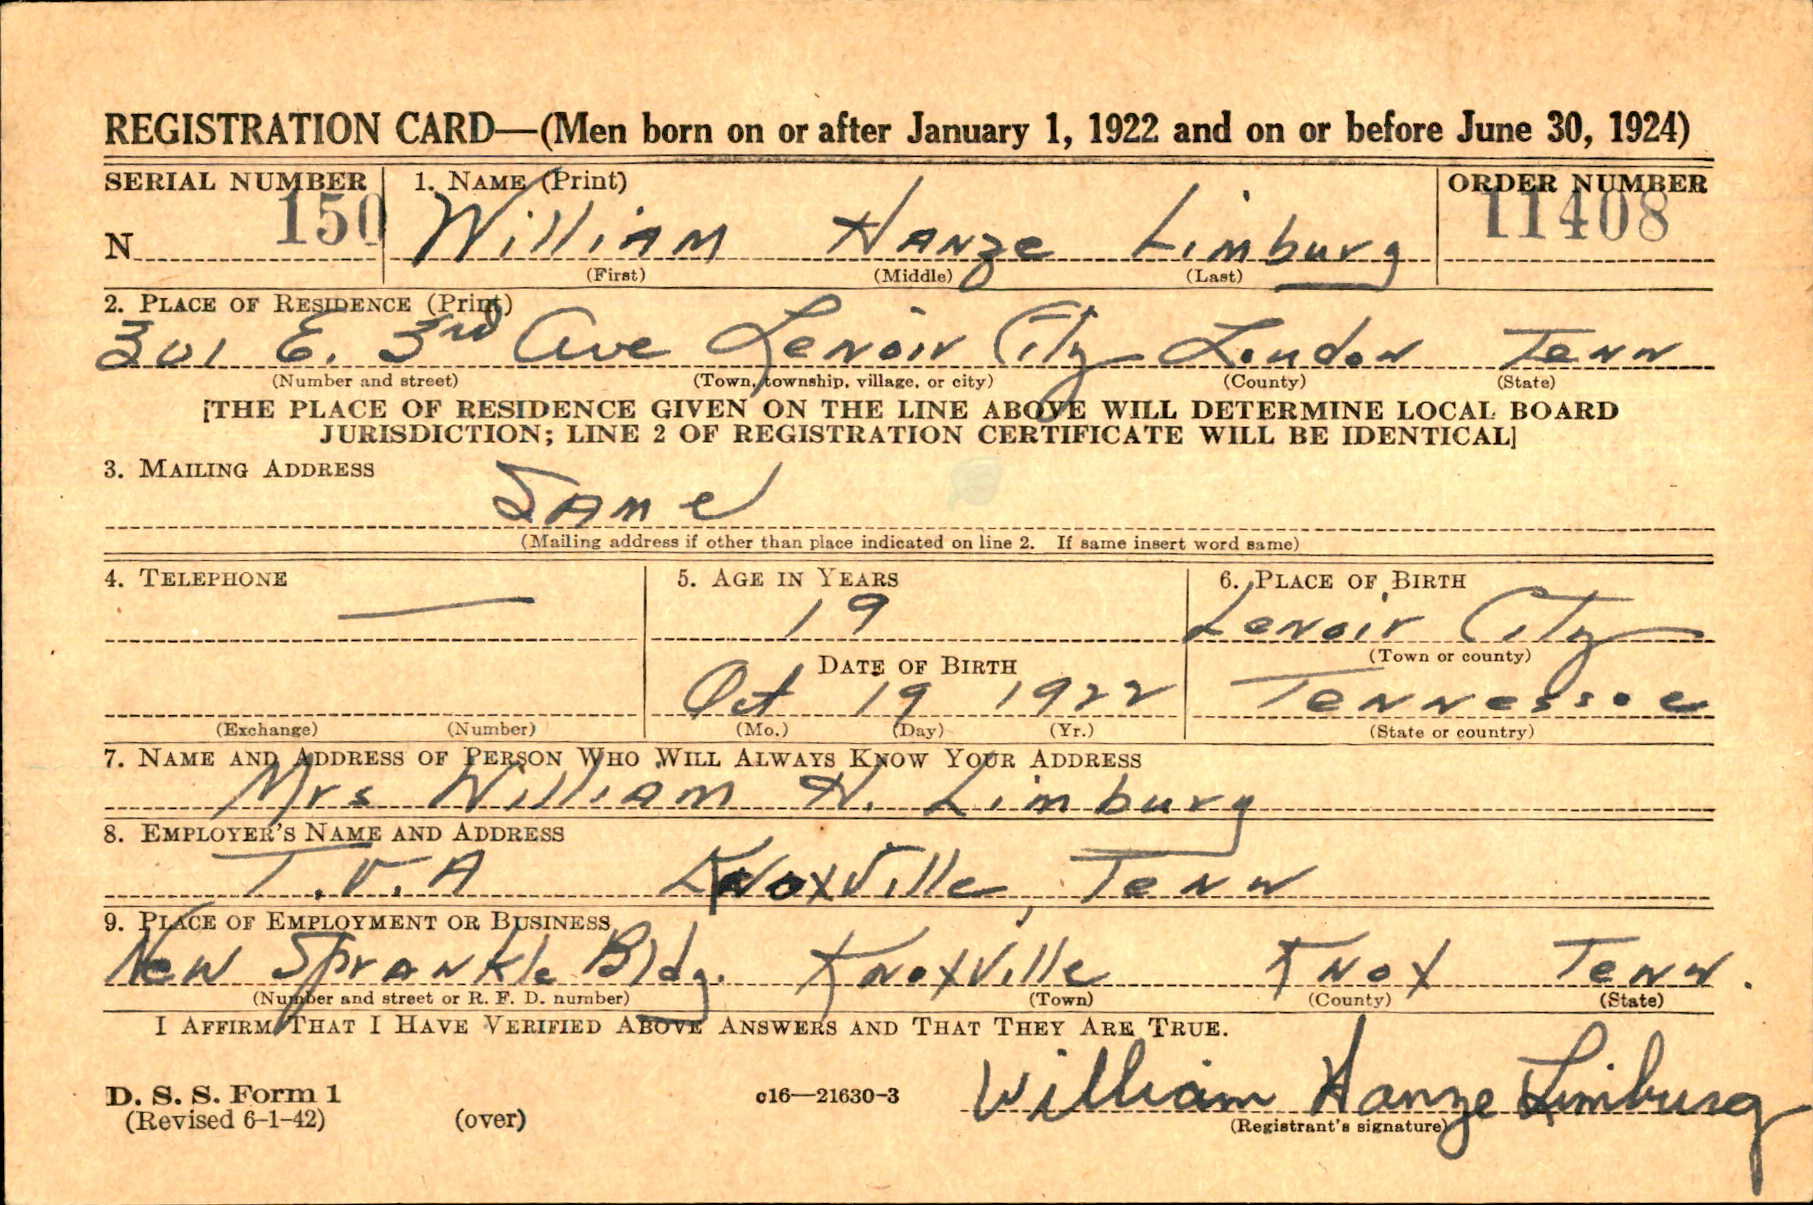 REGISTRATION CARD—(Men born on or after January 1, 1922 and on or before June 30, 1924)
SERIAL NUMBER 1. NAME (Print) ORDER NUMBER
N 150 William Hanze Limburg 11408
(First) (Middle) (Last)
2. PLACE OF RESIDENCE (Print)
301 E. 3rd Ave Lenoir City Loudon Tenn
(Number and street) (Town, township, village, or city) (County) (State)
[THE PLACE OF RESIDENCE GIVEN ON THE LINE ABOVE WILL DETERMINE LOCAL BOARD
JURISDICTION; LINE 2 OF REGISTRATION CERTIFICATE WILL BE IDENTICAL]
3. MAILING ADDRESS
Same
(Mailing address if other than place indicated on line 2. If same insert word same)
4. TELEPHONE 5. AGE IN YEARS 6. PLACE OF BIRTH
— 19 Lenoir City
DATE OF BIRTH (Town or county)
Oct 19 1922 Tennessee
(Exchange) (Number) (Mo.) (Day) (Yr.) (State or country)
7. NAME AND ADDRESS OF PERSON WHO WILL ALWAYS KNOW YOUR ADDRESS
Mrs William H. Limburg
8. EMPLOYER'S NAME AND ADDRESS
T.V.A Knoxville, Tenn
9. PLACE OF EMPLOYMENT OR BUSINESS
New Sprankle Bldg. Knoxville Knox Tenn.
(Number and street or R. F. D. number) (Town) (County) (State)
I AFFIRM THAT I HAVE VERIFIED ABOVE ANSWERS AND THAT THEY ARE TRUE.
William Hanze Limburg
D. S. S. Form 1 c16—21630-3
(Revised 6-1-42) (over) (Registrant's signature)